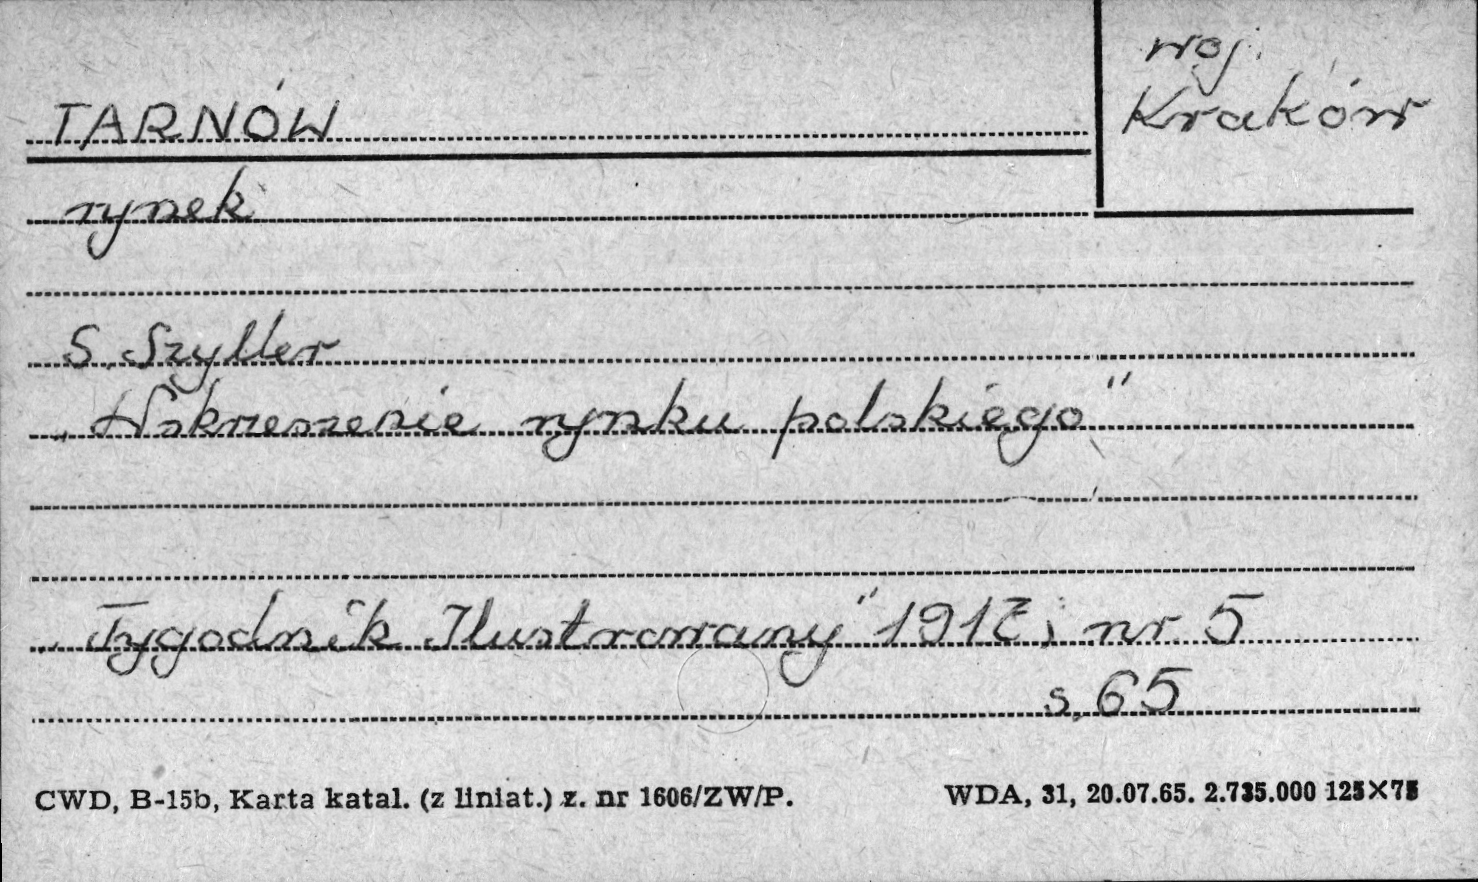 TARNÓW
woj.
Kraków
rynek
S. Szyller
„Wskrzeszenie rynku polskiego"
„Tygodnik Ilustrowany" nr 5
s. 65
CWD, B-15b, Karta katal. (z liniat.) z. nr 1606/ZW/P.
WDA, 31, 20.07.65. 2.735.000 125×75